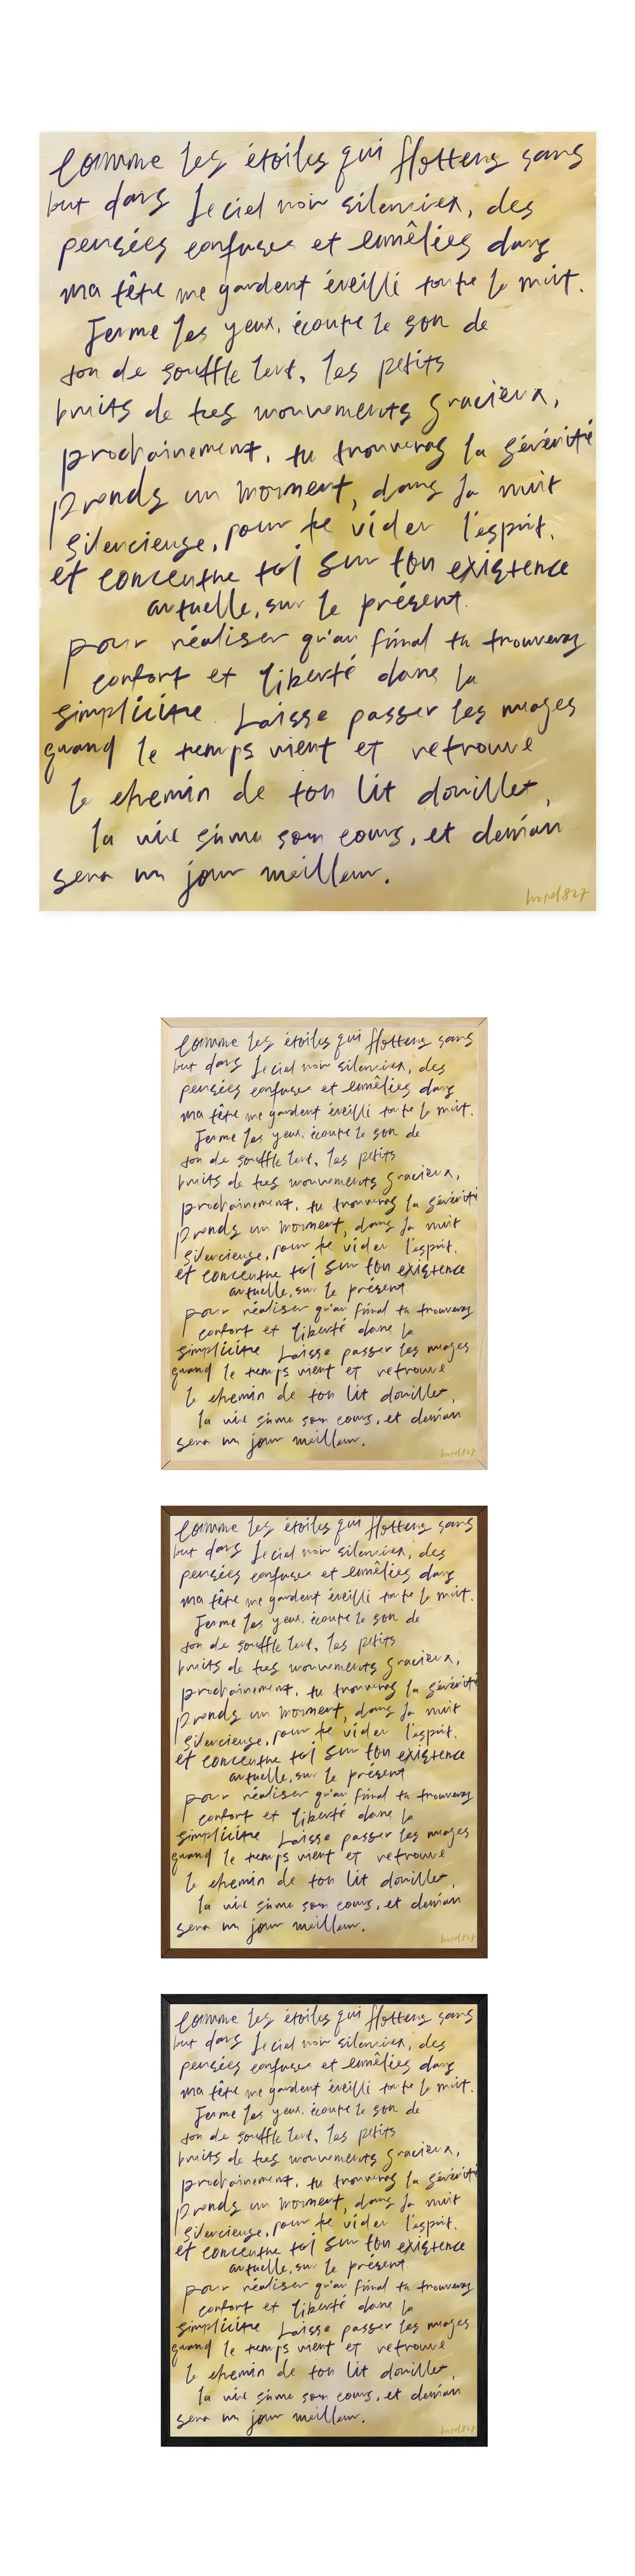 Comme les étoiles qui flottent sans
but dans le ciel noir silencieux, des
pensées confuses et emmêlées dans
ma tête me gardent éveillé toute la nuit.
Ferme les yeux, écoute le son de
ton de souffle lent, les petits
bruits de tes mouvements gracieux,
prochainement, tu trouveras la sérénité
Prends un moment, dans la nuit
silencieuse, pour te vider l'esprit.
et concentre toi sur ton existence
actuelle, sur le présent.
pour réaliser qu'au final tu trouveras
confort et liberté dans la
simplicité. Laisse passer les nuages
quand le temps vient et retrouve
le chemin de ton lit douillet,
la vie suit son cours, et demain
sera un jour meilleur.
Comme les étoiles qui flottent sans
but dans le ciel noir silencieux, des
pensées confuses et emmêlées dans
ma tête me gardent éveillé toute la nuit.
Ferme les yeux, écoute le son de
ton de souffle lent, les petits
bruits de tes mouvements gracieux,
prochainement, tu trouveras la sérénité
Prends un moment, dans la nuit
silencieuse, pour te vider l'esprit.
et concentre toi sur ton existence
actuelle, sur le présent.
pour réaliser qu'au final tu trouveras
confort et liberté dans la
simplicité. Laisse passer les nuages
quand le temps vient et retrouve
le chemin de ton lit douillet,
la vie suit son cours, et demain
sera un jour meilleur.
Comme les étoiles qui flottent sans
but dans le ciel noir silencieux, des
pensées confuses et emmêlées dans
ma tête me gardent éveillé toute la nuit.
Ferme les yeux, écoute le son de
ton de souffle lent, les petits
bruits de tes mouvements gracieux,
prochainement, tu trouveras la sérénité
Prends un moment, dans la nuit
silencieuse, pour te vider l'esprit.
et concentre toi sur ton existence
actuelle, sur le présent.
pour réaliser qu'au final tu trouveras
confort et liberté dans la
simplicité. Laisse passer les nuages
quand le temps vient et retrouve
le chemin de ton lit douillet,
la vie suit son cours, et demain
sera un jour meilleur.
Comme les étoiles qui flottent sans
but dans le ciel noir silencieux, des
pensées confuses et emmêlées dans
ma tête me gardent éveillé toute la nuit.
Ferme les yeux, écoute le son de
ton de souffle lent, les petits
bruits de tes mouvements gracieux,
prochainement, tu trouveras la sérénité
Prends un moment, dans la nuit
silencieuse, pour te vider l'esprit.
et concentre toi sur ton existence
actuelle, sur le présent.
pour réaliser qu'au final tu trouveras
confort et liberté dans la
simplicité. Laisse passer les nuages
quand le temps vient et retrouve
le chemin de ton lit douillet,
la vie suit son cours, et demain
sera un jour meilleur.